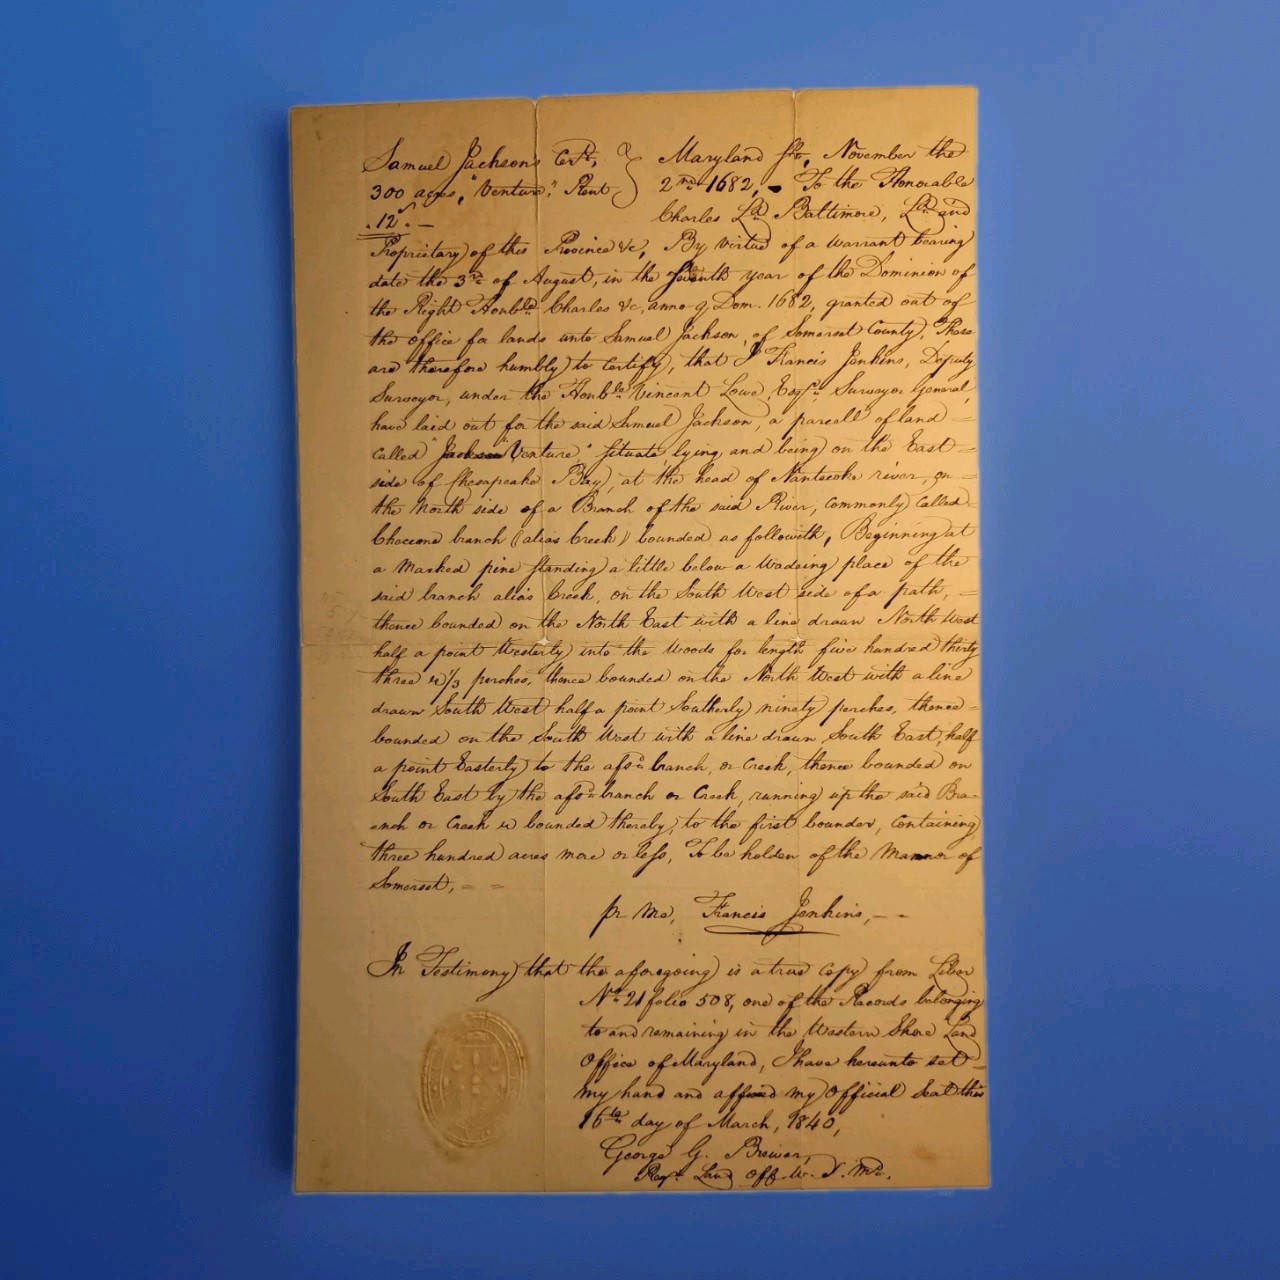 Samuel Jackson's Certe. } Maryland Ss, November the
300 acres, "Venture," Rent } 2nd 1682, To the Honorable
.12s.— Charles Ld Baltimore, Ld and
Proprietary of this Province &c, By virtue of a warrant bearing
date the 3rd of August, in the Seventh year of the Dominion of
the Right Honble Charles &c, anno q Dom. 1682, granted out of
the office for lands unto Samuel Jackson, of Somerset County, These
are therefore humbly to certify, that I Francis Jenkins, Deputy
Surveyor, under the Honble Vincent Lowe, Esqr Surveyor General,
have laid out for the said Samuel Jackson, a parcell of land =
called "Jackson Venture," situate lying and being on the East =
side of Chesapeake Bay, at the head of Nantecoke river, on =
the North side of a Branch of the said River, commonly called
Choceone branch (alias Creek) bounded as followith, Beginning at
a marked pine standing a little below a wadeing place of the
said branch alias Creek, on the South West side of a path, =
thence bounded on the North East with a line drawn North West
half a point Westerly into the woods for length five hundred thirty
three & 1/3 perches, thence bounded on the North West with a line
drawn South West half a point Southerly ninety perches, thence =
bounded on the South West with a line drawn South East, half
a point Easterly to the afsd branch, or Creek, thence bounded on
South East by the afsd branch or Creek, running up the said Bra-
-nch or Creek & bounded thereby, to the first bounder, containing
three hundred acres more or less, To be holden of the Mannor of
Somerset, = =
pr me, Francis Jenkins, — —
In Testimony that the aforegoing is a true copy from Liber
No 21 folio 508, one of the Records belonging
to and remaining in the Western Shore Land
Office of Maryland, I have hereunto set =
my hand and affixed my Official Seal this
16th day of March, 1840,
George G. Brewer,
Regr Land Off W. S. Md.